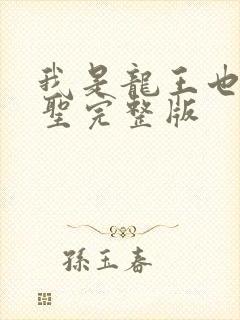 我是龍王也
聖完整版
孫玉春